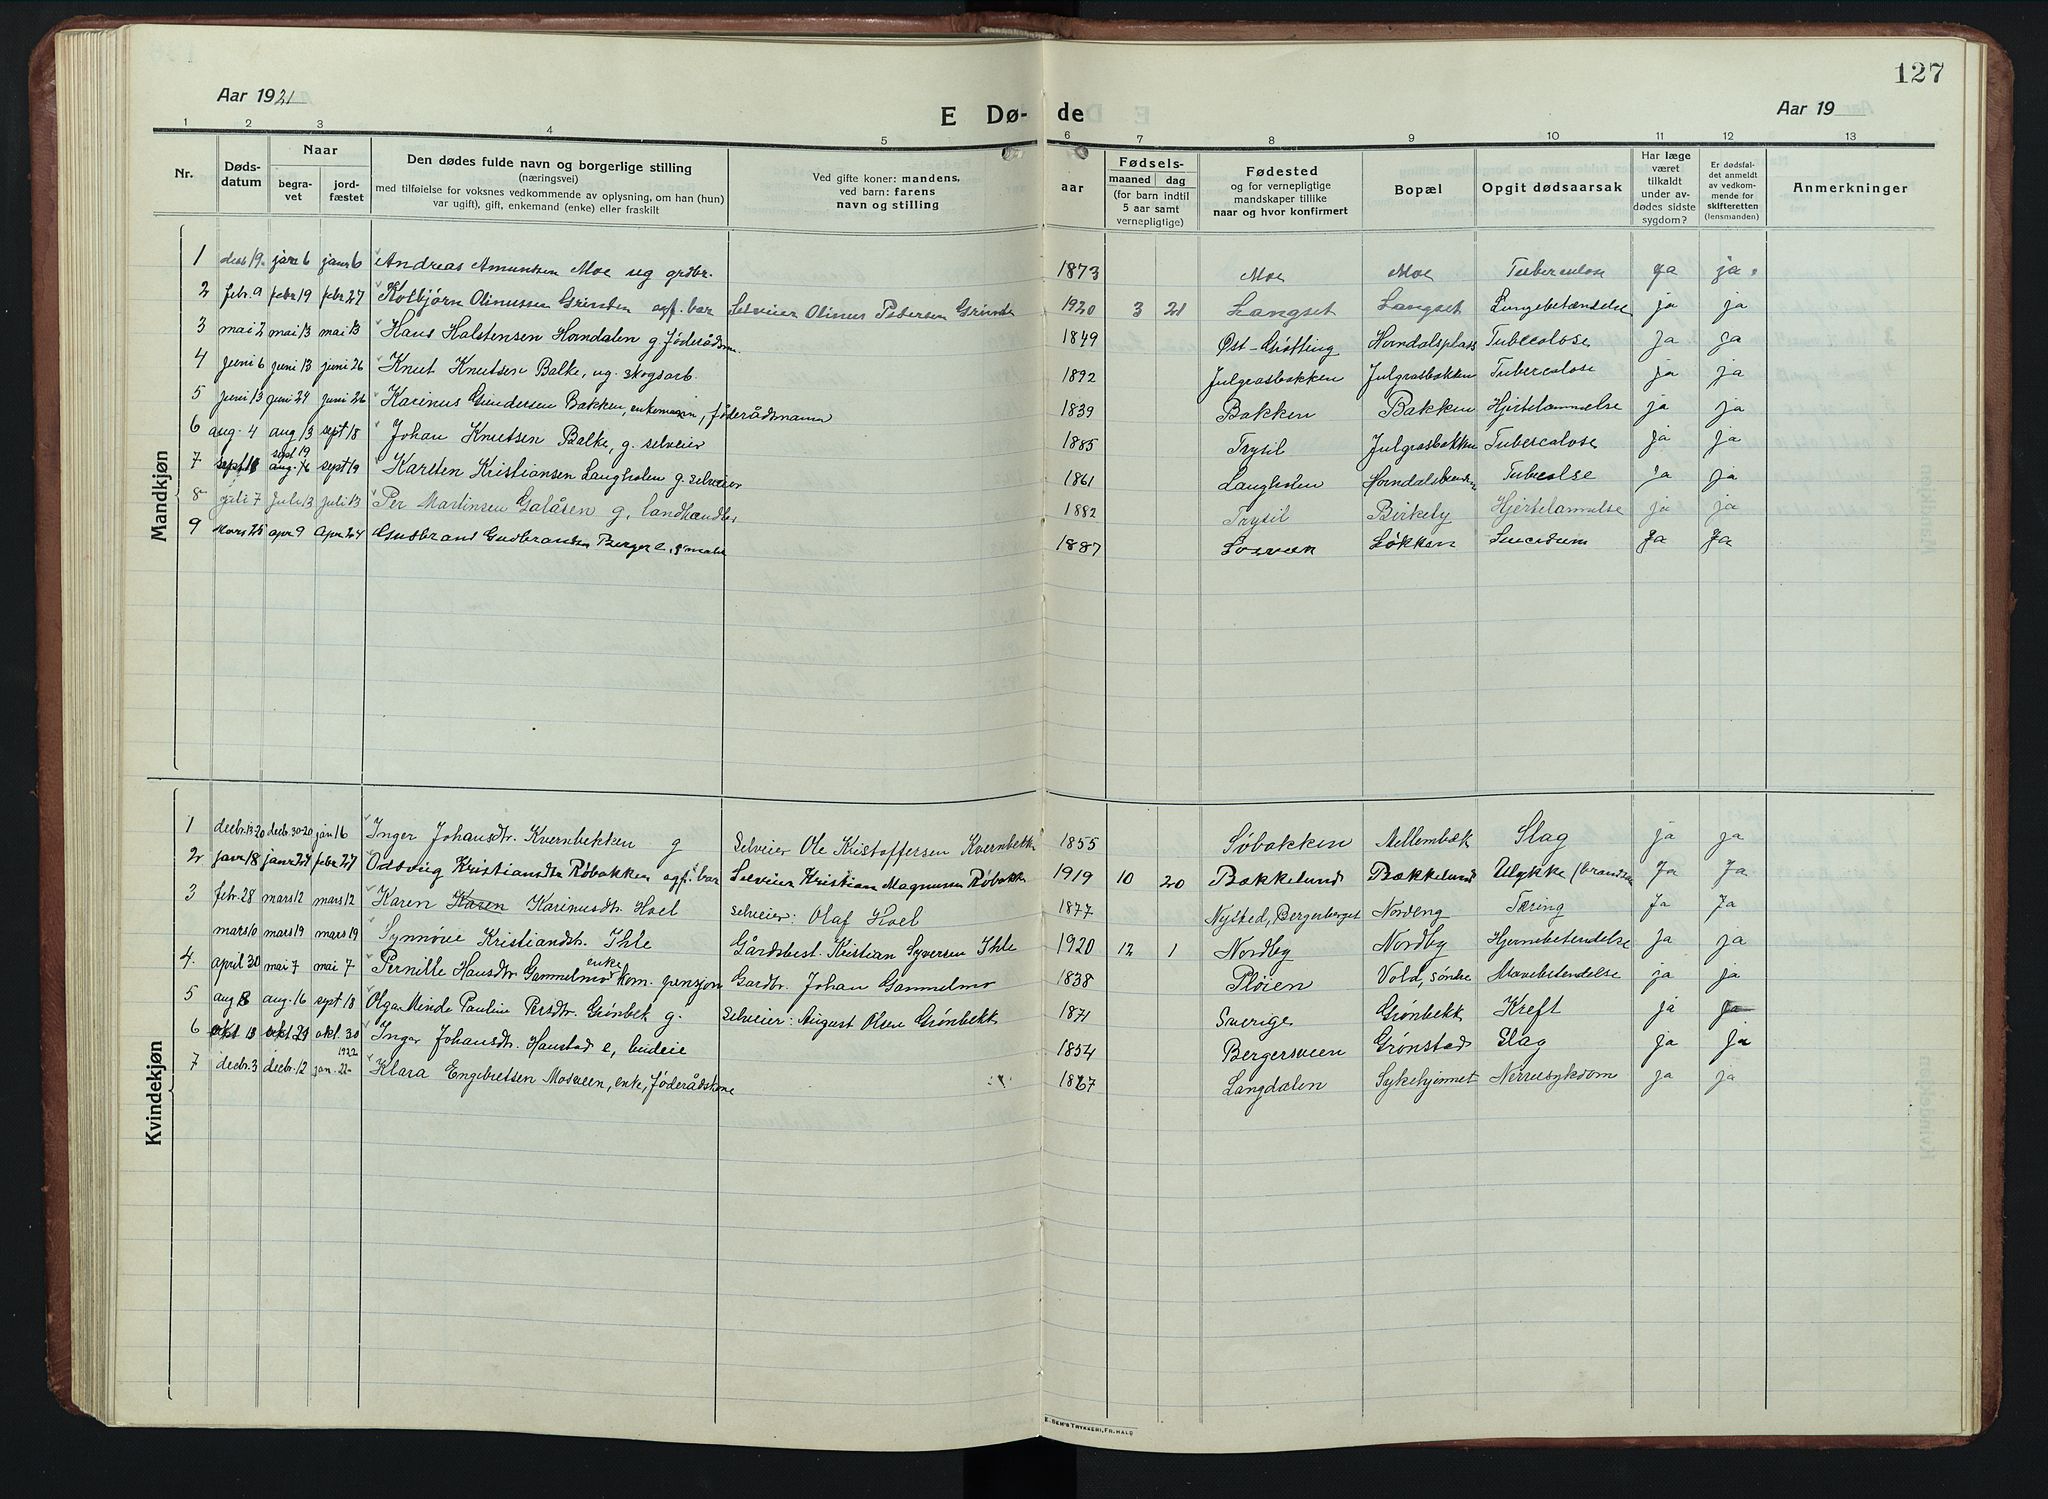 127
Aar 1921
E Dø-de
Aar 19
1 2 3 4 5 6 7 8 9 10 11 12 13
Nr.
Døds-datum
Naar
begra-vet
jord-fæstet
Den dødes fulde navn og borgerlige stilling
(næringsvei)
med tilføielse for voksnes vedkommende av oplysning, om han (hun)
var ugift), gift, enkemand (enke) eller fraskilt
Ved gifte koner: mandens,
ved barn: farens
navn og stilling
aar
Fødsels-
maaned dag
(for barn indtil
5 aar samt
vernepligtige)
Fødested
og for vernepligtige
mandskaper tillike
naar og hvor konfirmert
Bopæl
Opgit dødsaarsak
Har læge
været
tilkaldt
under av-
dødes sidste
sygdom?
Er dødsfal-
det anmeldt
av vedkom-
mende for
skifteretten
(lensmanden)
Anmerkninger
Mandkjøn
1 decb 19. jan 6 janr 6 Andreas Amundsen Moe ug grdbr. 1873 Moe Moe Tuberculose ja ja
2 febr. 9 febr 19 febr 27 Kolbjørn Olinussen Grinden ogf. bar Selveier Olinus Pedersen Grinden 1920 3 21 Langset Langset Lungebetændelse ja ja
3 mai 2 mai 13 mai 13 Hans Halstensen Horndalen g. føderådsm. 1849 Øst-Grøtting Horndalsplads Tubecolose ja ja
4 juni 6 juni 13 juni 26 Knut Knutsen Balke, ug. skogsarb. 1892 Julgrasbakken Julgrasbakken Tubercalose ja ja
5 juni 13 juni 24 juni 26 Karinus Gundersen Bakken, enkemann, føderådsmann 1839 Bakken Bakken Hjertelammelse ja ja
6 aug. 4 aug 13 sept 18 Johan Knutsen Balke, g. selveier 1885 Trysil Julgrasbakken Tubercalose ja ja
sept 19
7 sept 18 aug. 16 sept 19 Karsten Kristiansen Langholen g. selveier 1861 Langholen Horndalsbranden Tubecolse ja ja
8 juli 7 Juli 13 Juli 13 Per Martinsen Galåsen g, landhandler 1882 Trysil Birkely Hjertelammelse ja ja
9 Mars 25 apr 9 Apr 24 Gudbrand Gudbrandsen Berger e, g maler 1887 Losveen Løkken Sucidum Ja Ja
Kvindekjøn
1 decbr. 13 20 decb. 30-20 jan 16 Inger Johansdtr. Kvernbekken g Selveier Ole Kristoffersen Kvernbekk 1855 Søbakken Mellembæk Slag ja ja
2 janr 18 janr 27 febr 27 Oddveig Kristiansdtr Røbakken ogf. bar Selveier Kristian Magnussen Røbakk 1919 10 20 Bækkelund Bækkelund Ulykke (brandsår Ja Ja
3 febr. 28 mars 12 mars 12 Karen Karen Karinusdtr. Hoel selveier: Olaf Hoel 1877 Nysted, Bergerberget Nordeng Tæring Ja Ja
mars 10 mars 19 mars 19 Synnøve Kristiandtr. Ihle Gårdsbest. Kristian Syversen Ihle 1920 12 1 Nordby Nordby Hjernebetendelse Ja ja
enke
4. april 30 mai 7 mai 7 Pernille Hansdtr Gammelmo kom. pensjon Gardbr. Johan Gammelmo 1838 Pløien Vold, søndre Mavebetendelse ja ja
5 aug 8 aug. 16 sept 18 Olga Minde Pauline Persdtr. Grønbek g. selveier: August Olsen Grønbekk 1871 Sverige Grønbekk Kreft ja ja
6 okt 13 okt 29 okt. 30 Inger Johansdtr. Haustad e, budeie 1854 Bergersveen Grønstad Slag ja ja
1922
7 decbr. 3 decbr. 12 jan. 22 Klara Engebretsen Mosveen, enke, føderådskone 1867 Langdalen Sykehjemmet Nervesykdom ja ja
E. SEM'S TRYKKERI, FR.HALD